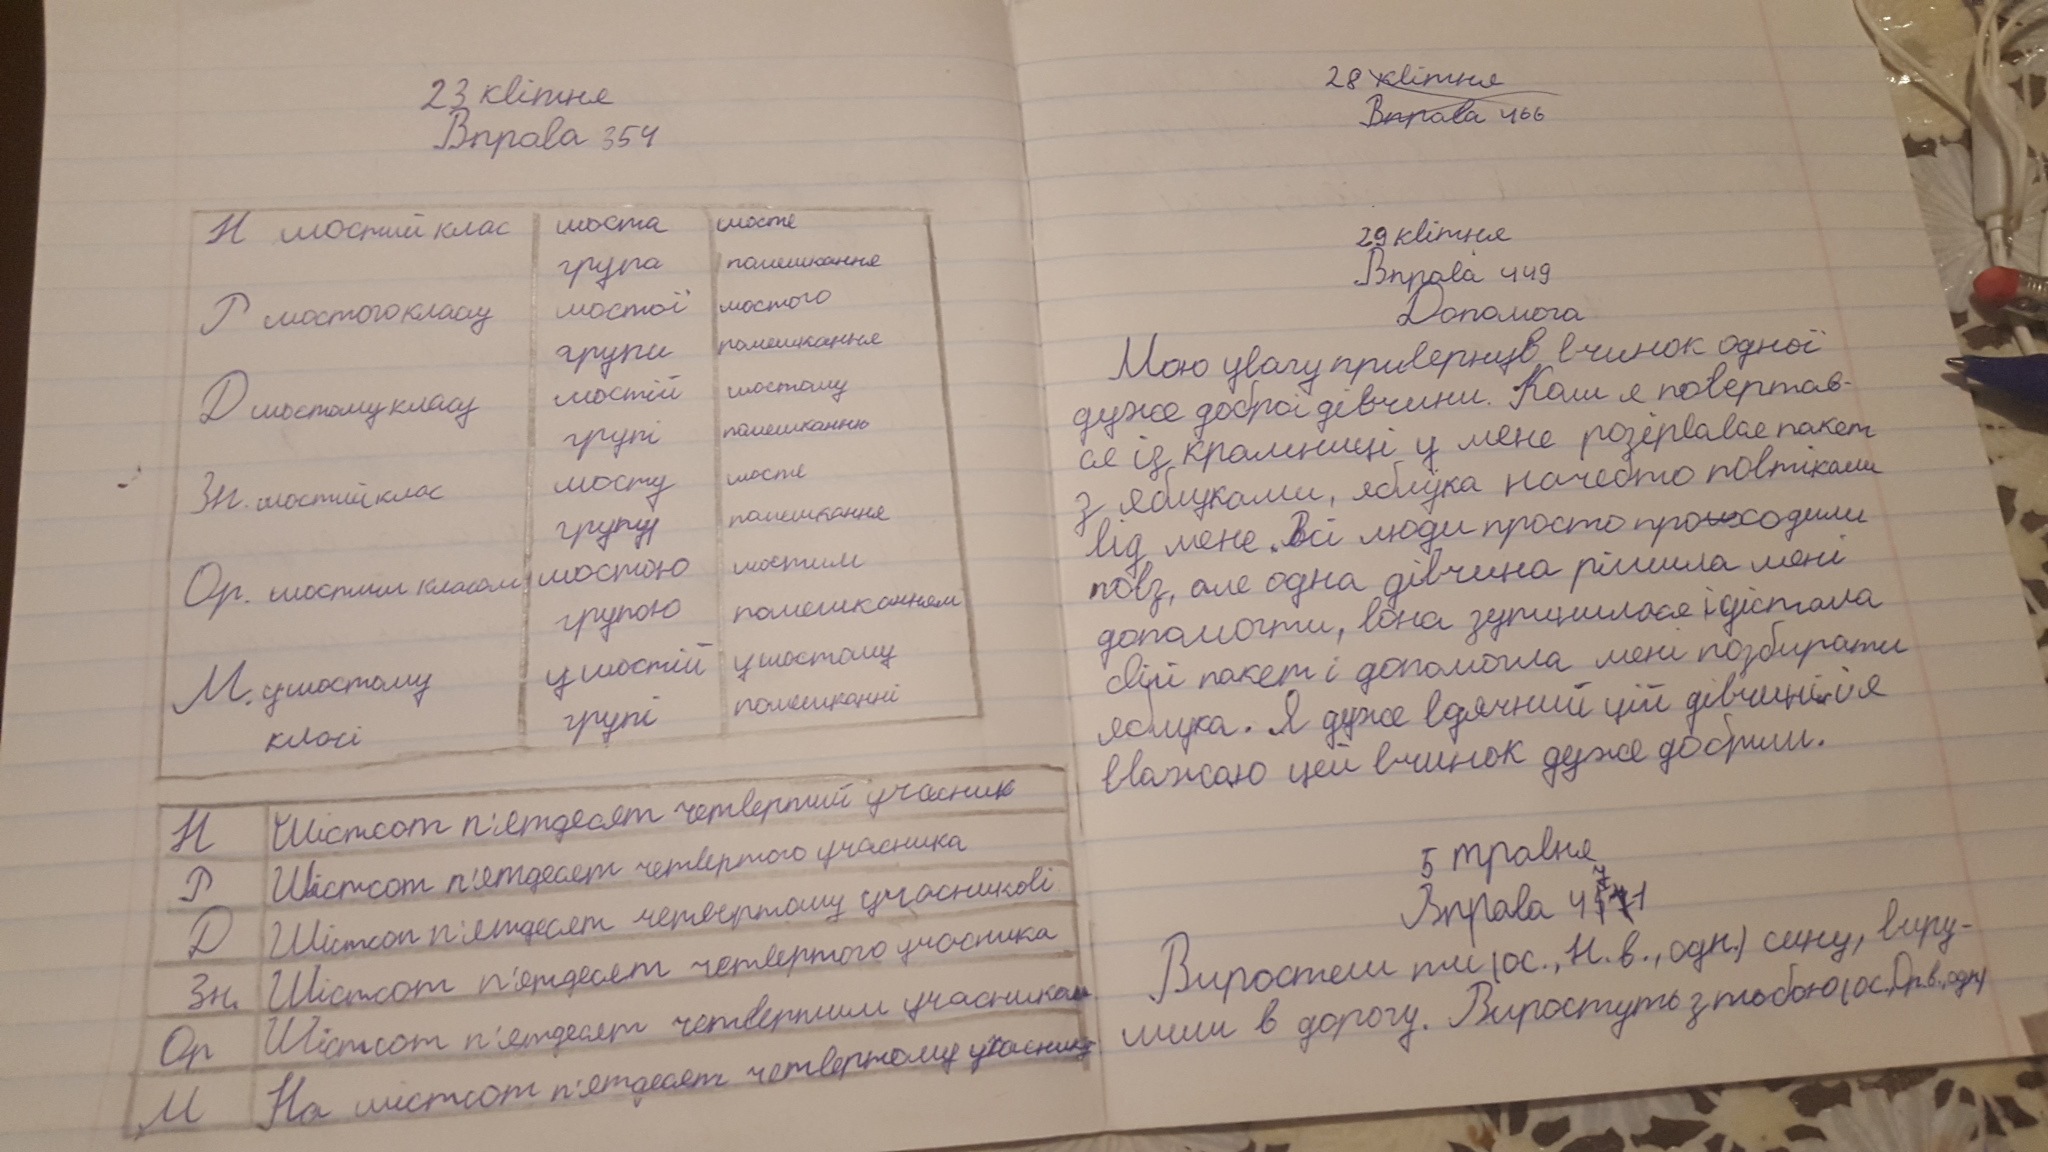 23 квітня
Вправа 354
Н шостий клас шоста шосте
група помешкання
Р шостого класу шостої шостого
групи помешкання
Д шостому класу шостій шостому
групі помешканню
Зн. шостий клас шосту шосте
групу помешкання
Ор. шостим класом шостою шостим
групою помешканням
М. у шостому у шостій у шостому
класі групі помешканні
Н Шістсот п'ятдесят четвертий учасник
Р Шістсот п'ятдесят четвертого учасника
Д Шістсот п'ятдесят четвертому учасникові
Зн. Шістсот п'ятдесят четвертого учасника
Ор Шістсот п'ятдесят четвертим учасником
М На шістсот п'ятдесят четвертому учаснику
28 квітня
Вправа 466
29 квітня
Вправа 449
Допомога
Мою увагу привернув вчинок одної
дуже доброї дівчини. Коли я повертав-
ся із крамниці у мене розірвався пакет
з яблуками, яблука начебто повтікали
від мене. Всі люди просто проходили
повз, але одна дівчина рішила мені
допомогти, вона зупинилася і дістала
свій пакет і допомогла мені позбирати
яблука. Я дуже вдячний цій дівчині і я
вважаю цей вчинок дуже добрим.
5 травня
Вправа
Виростеш ти (ос., Н.в., одн.) сину, виру-
шиш в дорогу. Виростуть з тобою (ос., Ор.в., одн)